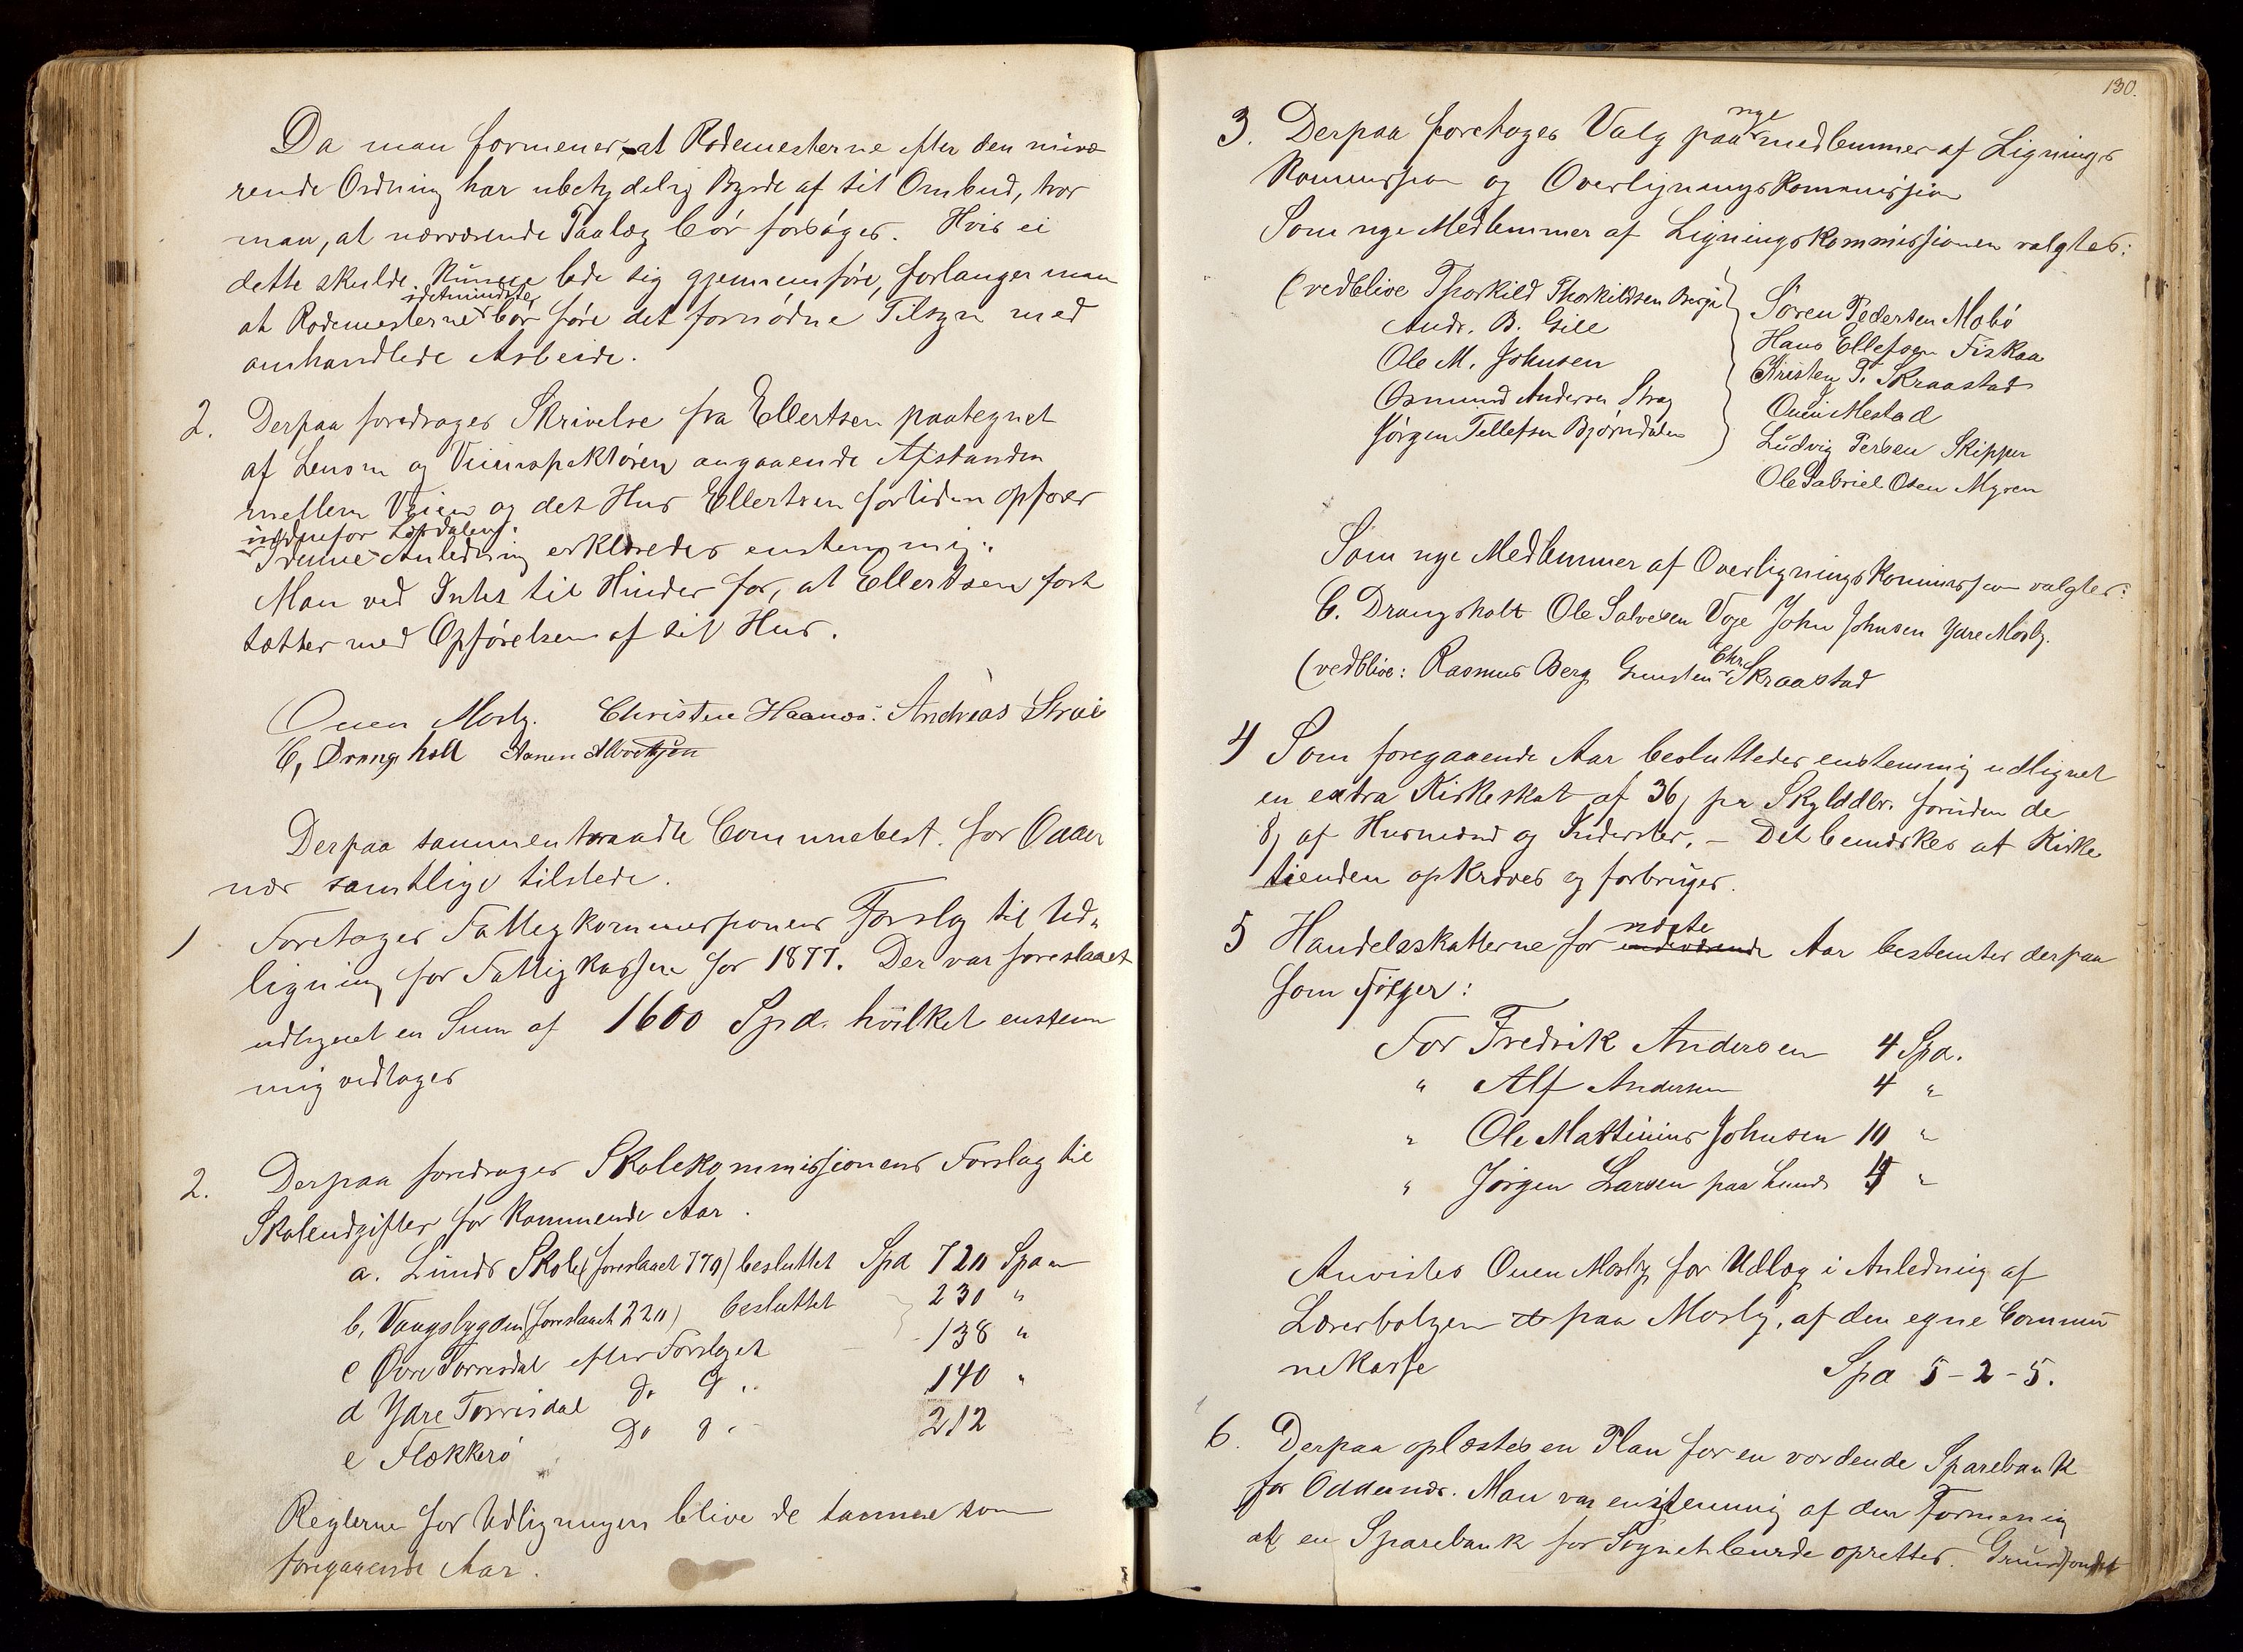 Da man formener, at Rodemesterne efter den nuvæ
rende Ordning har ubetydelig Byrde af sit Ombud, tror
man, at nærværende Paalæg bør forsøges. Hvis ei
dette skulde kunne lade sig gjennemføre, forlanger man
idetmindste
at Rodemesterne bør føre det fornødne Tilsyn med
omhandlede Arbeide.
2. Derpaa foredrages Skrivelse fra Ellertsen paategnet
af Lensm og Veiinspektøren angaaende Afstanden
mellem Veien og det Hus Ellertsen fortiden opfører
I denne Anledning erklæredes enstemmig:
Man ved Intet til Hinder for, at Ellertsen fort
sætter med Opførelsen af sit Hus.
Ouen Mosby. Christen Haanes. Andreas Strai
C, Drangsholt Aanen
Derpaa sammentraadte Communebest. for Odder
nes samtlige tilstede.
1 Foretages Fattigkommissionens Forslag til Ud-
ligning for Fattigkassen for 1877. Der var foreslaaet
udlignet en Sum af 1600 Spd. hvilket enstem
mig vedtages
2. Derpaa foredrages Skolekommissionens Forslag til
Skoleudgifter for kommende Aar.
a. Lunds Skole (foreslaaet 770) besluttet Spd 720 Spd
b, Vaagsbygden (foreslaaet 220) besluttet 230 "
c Øvre Torrisdal efter Forslaget 138 "
d Ydre Torrisdal Do Do 140 "
e Flækkerø Do Do 212
Reglerne for Udligningen blive de samme som
foregaaende Aar.
130.
nye
3. Derpaa foretages Valg paa medlemmer af Lignings
kommission og Overligningskommission
Som nye Medlemmer af Ligningskommissionen valgtes:
(vedblive Thorkild Thorkildsen Berge
Andr. B. Gill
Ole M. Johnsen
Osmund Andersen Stray
Jørgen Tellefsen Bjørndalen
Søren Pedersen Mobø
Hans Ellefsen Fiskaa
Kristen T. Skraastad
Ouen Mestad
Ludvig Persen Skipper
Ole Gabriel Osen Myren
Som nye Medlemmer af Overligningskommission valgtes:
C. Drangsholt Ole Salvesen Voje John Johnsen Ydre Mosby.
Chr.
(vedblive: Rasmus Berg Gunsten Skraastad
4 Som foregaaende Aar besluttedes enstemmig udlignet
en extra Kirkeskat af 36 pr Skylddlr. foruden de
8 af Husmænd og Inderster. – Det bemærkes at Kirke
tienden opkræves og forbruges.
næste
5 Handelsskatterne for indeværende Aar bestemtes derpaa
som følger:
For Fredrik Andersen 4 Spd.
" Alf Andersen 4 "
" Ole Martinius Johnsen 10 "
" Jørgen Larsen paa Lund "
Anvistes Ouen Mosby for Udlæg i Anledning af
Lærerboligen paa Mosby, af den egne Commu
nekasse Spd 5-2-5.
6. Derpaa oplæstes en Plan for en vordende Sparebank
for Oddernes. Man var enstemmig af den Formening
at en Sparebank for Sognet burde oprettes. Grundfondet